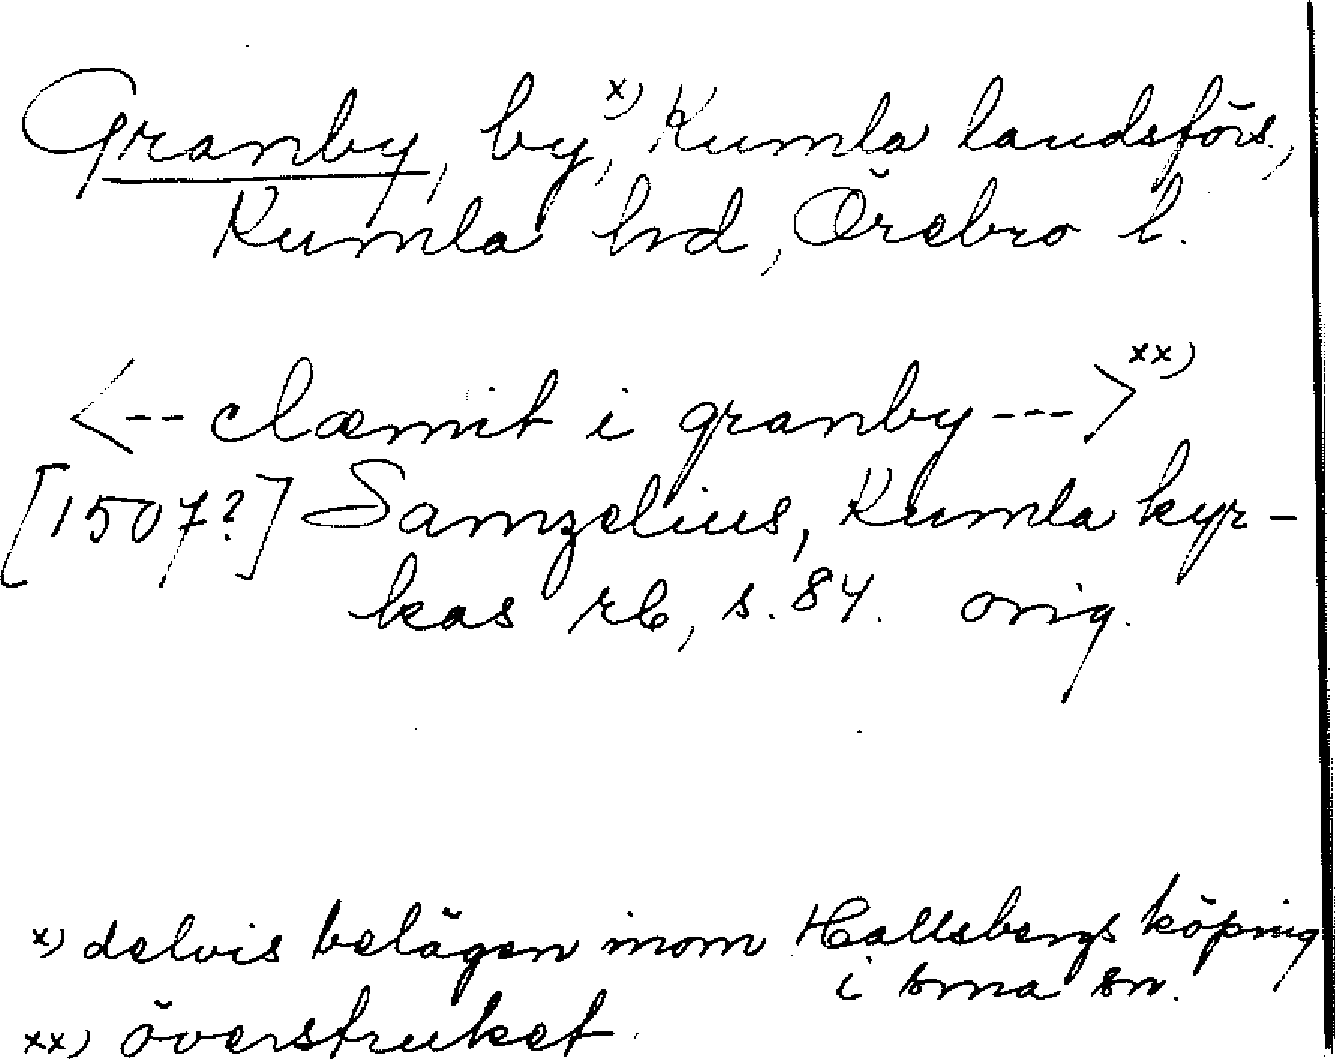 Granby, by,ˣ⁾ Kumla landsförs.,
Kumla hd, Örebro l.
<-- clæmit i granby --->ˣˣ⁾
[1507?] Samzelius, Kumla kyr-
kas rb, s. 84. orig.
x) delvis belägen inom Hallsbergs köping
i sma sn.
xx) överstruket.